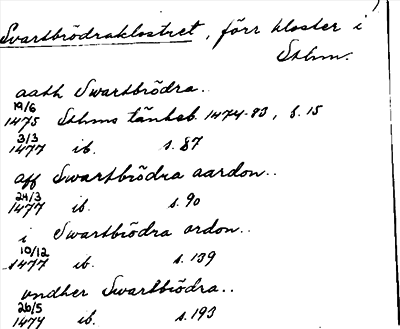 Svartbrödraklostret, förr kloster i
Sthm.
aath Swartbrödra..
19/6
1475 Sthms tänkeb. 1474-83, s. 15
3/3
1477 ib. s. 87
aff Swartbrödra aardon..
24/3
1477 ib. s. 90
i Swartbrödra ordon..
10/12
1477 ib. s. 139
undher Swartbrödra..
26/5
1479 ib. s. 193